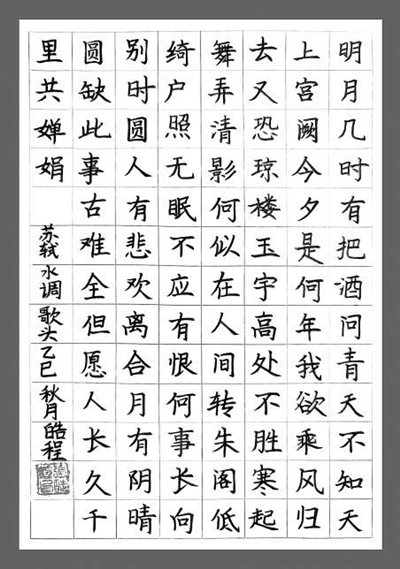 明月几时有把酒问青天不知天
上宫阙今夕是何年我欲乘风归
去又恐琼楼玉宇高处不胜寒起
舞弄清影何似在人间转朱阁低
绮户照无眠不应有恨何事长向
别时圆人有悲欢离合月有阴晴
圆缺此事古难全但愿人长久千
里共婵娟 苏轼水调歌头乙巳秋月皓程